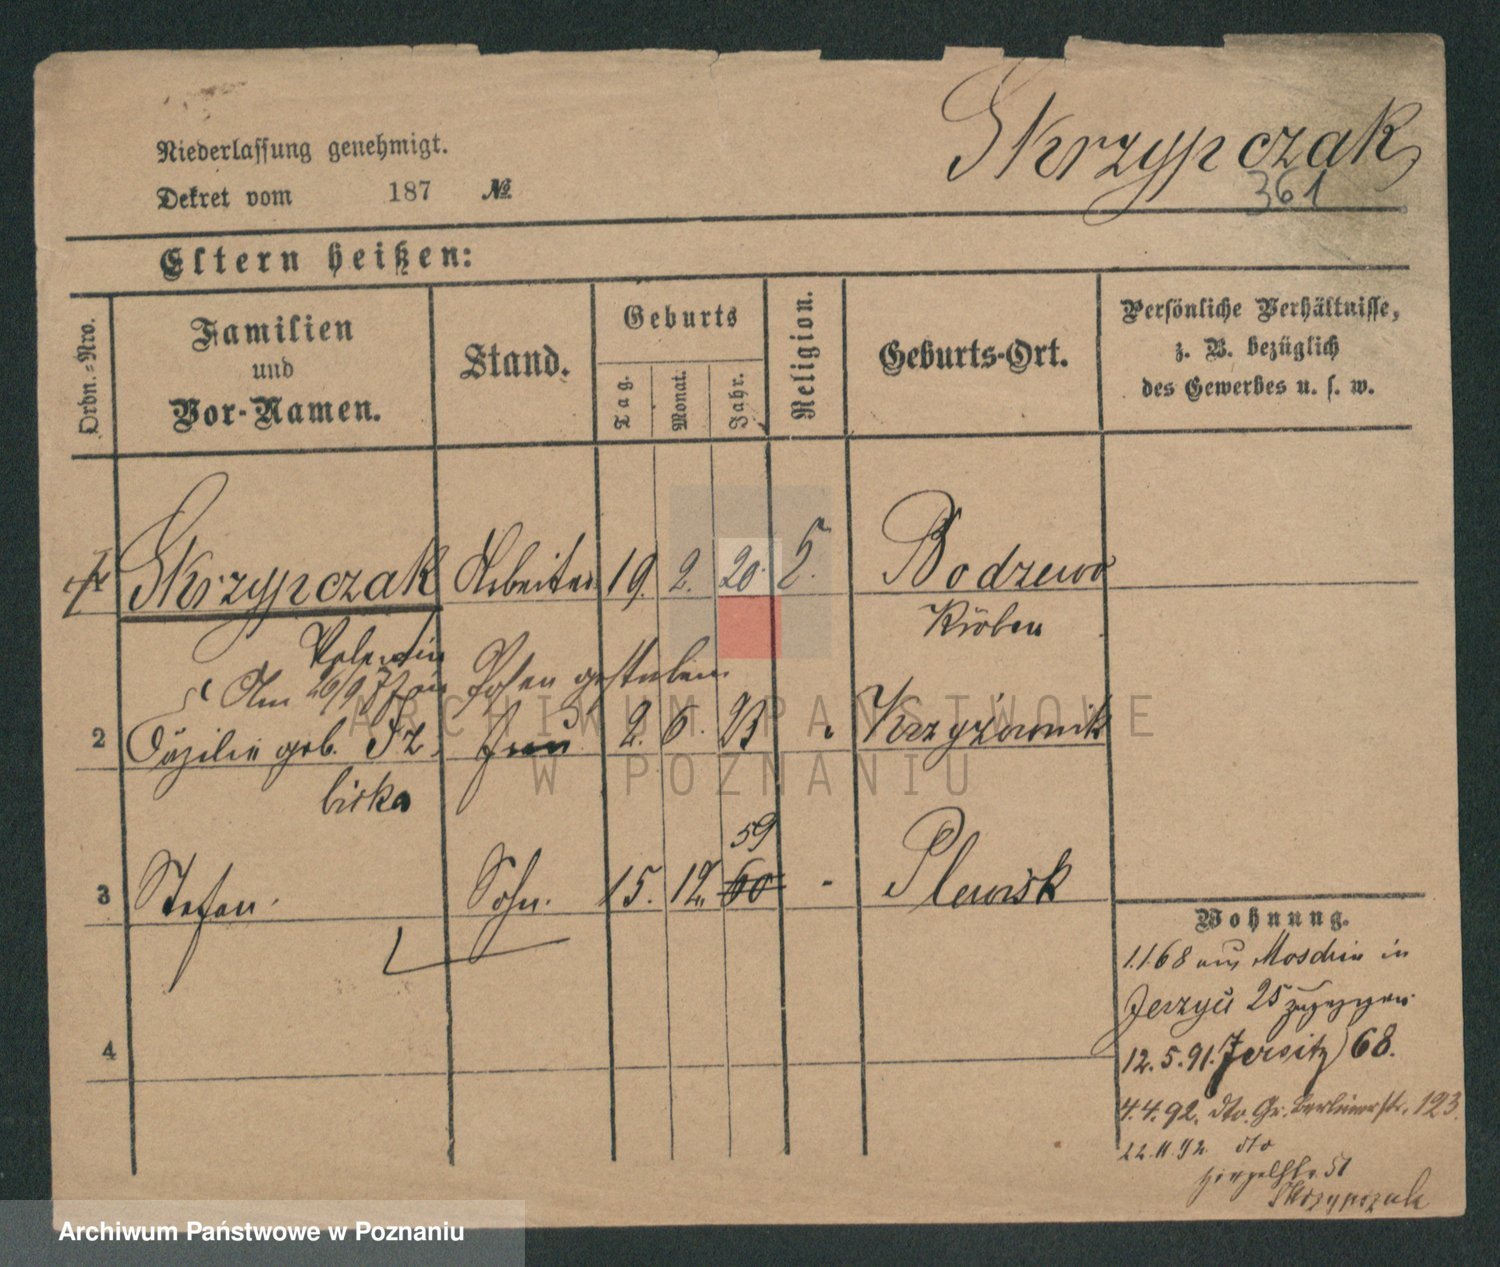 Skrzypczak
361
Niederlassung genehmigt.
Dekret vom 187 №
Eltern heißen:
Ordn.-Nro.
Familien und Vor-Namen.
Stand.
Geburts
Tag.
Monat.
Jahr.
Religion.
Geburts-Ort.
Persönliche Verhältnisse,
z. B. bezüglich
des Gewerbes u. s. w.
Skrzypczak Arbeiter 19. 2. 20. Bodzewo
Kröben
Valentin
Am 26/9 in Posen gestorben
2 Cäzilie geb. Iz Frau 2. 6. 23 Krzyżownik
bicka
59
3 Stefan. Sohn. 15. 12. 60 - Plewisk
4
Wohnung.
1.1.68 aus Moschin in
Jerzyce 25 zugezogen
12.5.91. Jersitz 68.
4.4.92. dto. Gr. Berlinerstr. 123.
22.11.92 dto
51
Skrzypczak
ARCHIWUM PAŃSTWOWE
W POZNANIU
Archiwum Państwowe w Poznaniu